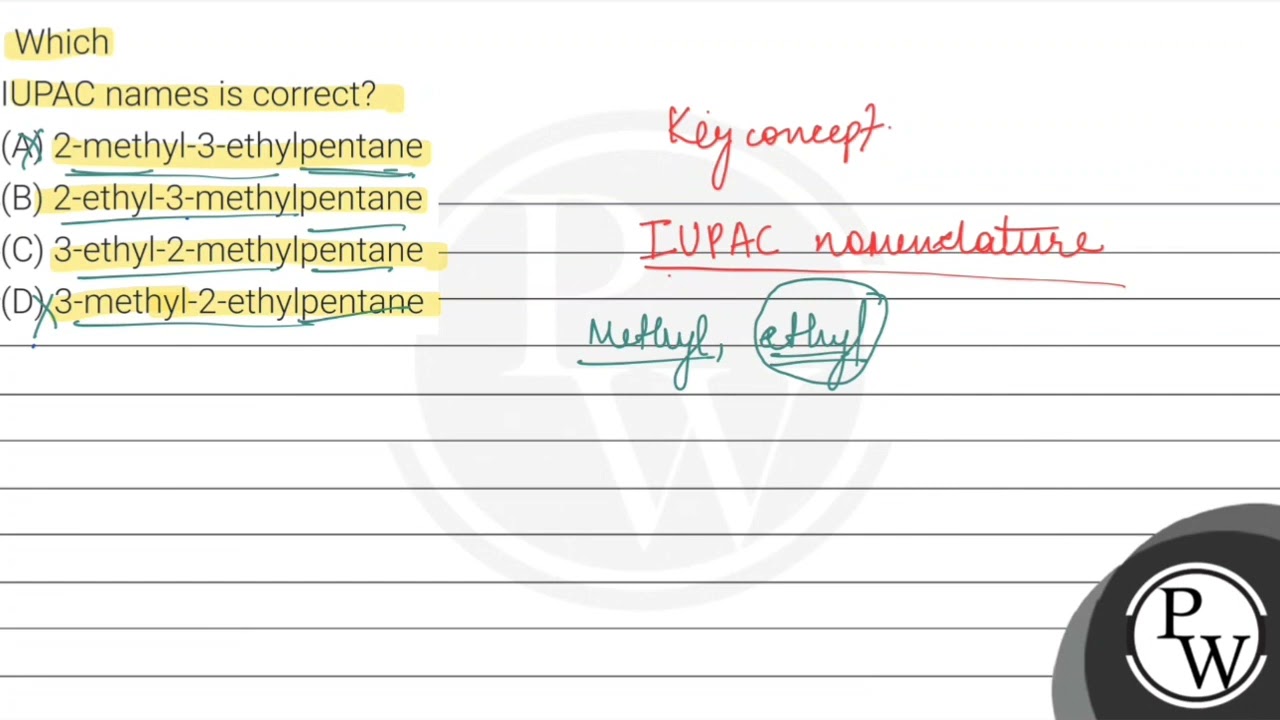 Which
IUPAC names is correct?
(A) 2-methyl-3-ethylpentane
(B) 2-ethyl-3-methylpentane
(C) 3-ethyl-2-methylpentane
(D) 3-methyl-2-ethylpentane
Key concept.
IUPAC nomenclature
Methyl, ethyl
P
W
P
W